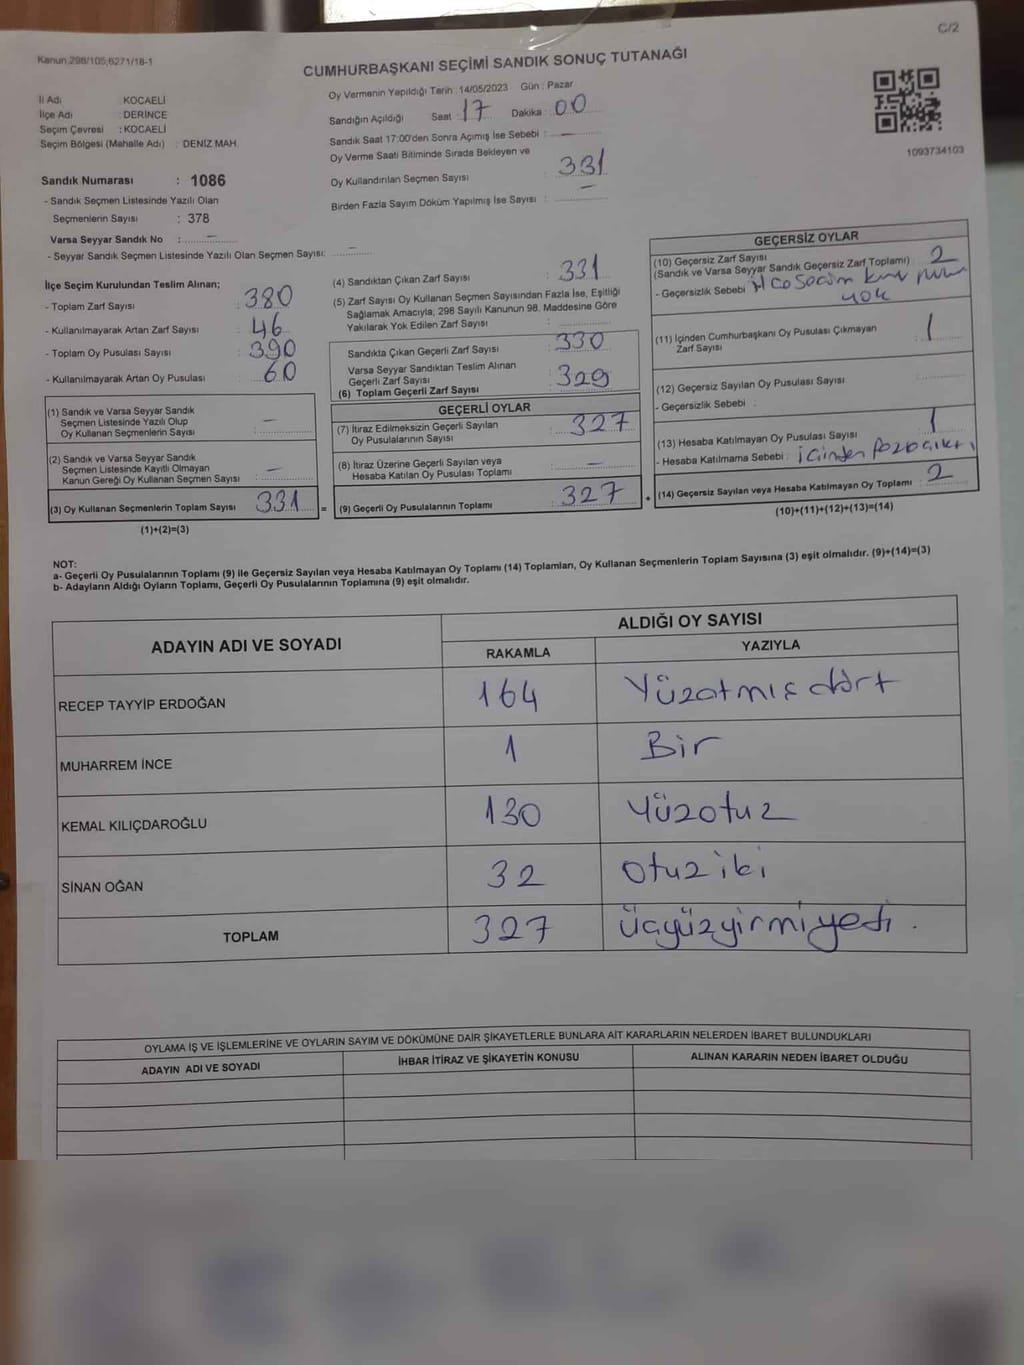 C/2
Kanun 298/105,6271/18-1
CUMHURBAŞKANI SEÇİMİ SANDIK SONUÇ TUTANAĞI
İl Adı : KOCAELİ
İlçe Adı : DERİNCE
Seçim Çevresi : KOCAELİ
Seçim Bölgesi (Mahalle Adı) : DENİZ MAH.
Oy Vermenin Yapıldığı Tarih : 14/05/2023 Gün : Pazar
Sandığın Açıldığı Saat : 17 Dakika : 00
Sandık Saat 17:00'den Sonra Açılmış İse Sebebi : —
Oy Verme Saati Bitiminde Sırada Bekleyen ve
Oy Kullandırılan Seçmen Sayısı : 331
Birden Fazla Sayım Döküm Yapılmış İse Sayısı : —
1093734103
Sandık Numarası : 1086
- Sandık Seçmen Listesinde Yazılı Olan
Seçmenlerin Sayısı : 378
Varsa Seyyar Sandık No : —
- Seyyar Sandık Seçmen Listesinde Yazılı Olan Seçmen Sayısı: —
İlçe Seçim Kurulundan Teslim Alınan;
- Toplam Zarf Sayısı : 380
- Kullanılmayarak Artan Zarf Sayısı : 46
- Toplam Oy Pusulası Sayısı : 390
- Kullanılmayarak Artan Oy Pusulası : 60
(1) Sandık ve Varsa Seyyar Sandık
Seçmen Listesinde Yazılı Olup
Oy Kullanan Seçmenlerin Sayısı : —
(2) Sandık ve Varsa Seyyar Sandık
Seçmen Listesinde Kayıtlı Olmayan
Kanun Gereği Oy Kullanan Seçmen Sayısı : —
(3) Oy Kullanan Seçmenlerin Toplam Sayısı 331 =
(1)+(2)=(3)
(4) Sandıktan Çıkan Zarf Sayısı : 331
(5) Zarf Sayısı Oy Kullanan Seçmen Sayısından Fazla İse, Eşitliği
Sağlamak Amacıyla, 298 Sayılı Kanunun 98. Maddesine Göre
Yakılarak Yok Edilen Zarf Sayısı :
Sandıkta Çıkan Geçerli Zarf Sayısı : 330
Varsa Seyyar Sandıktan Teslim Alınan
Geçerli Zarf Sayısı : 329
(6) Toplam Geçerli Zarf Sayısı :
GEÇERLİ OYLAR
(7) İtiraz Edilmeksizin Geçerli Sayılan
Oy Pusulalarının Sayısı : 327
(8) İtiraz Üzerine Geçerli Sayılan veya
Hesaba Katılan Oy Pusulası Toplamı : —
(9) Geçerli Oy Pusulalarının Toplamı : 327 +
GEÇERSİZ OYLAR
(10) Geçersiz Zarf Sayısı
(Sandık ve Varsa Seyyar Sandık Geçersiz Zarf Toplamı) : 2
- Geçersizlik Sebebi :
yok
(11) İçinden Cumhurbaşkanı Oy Pusulası Çıkmayan
Zarf Sayısı : 1
(12) Geçersiz Sayılan Oy Pusulası Sayısı :
- Geçersizlik Sebebi :
(13) Hesaba Katılmayan Oy Pusulası Sayısı : 1
- Hesaba Katılmama Sebebi : içinden
(14) Geçersiz Sayılan veya Hesaba Katılmayan Oy Toplamı : 2
(10)+(11)+(12)+(13)=(14)
NOT:
a- Geçerli Oy Pusulalarının Toplamı (9) ile Geçersiz Sayılan veya Hesaba Katılmayan Oy Toplamı (14) Toplamları, Oy Kullanan Seçmenlerin Toplam Sayısına (3) eşit olmalıdır. (9)+(14)=(3)
b- Adayların Aldığı Oyların Toplamı, Geçerli Oy Pusulalarının Toplamına (9) eşit olmalıdır.
ADAYIN ADI VE SOYADI ALDIĞI OY SAYISI
RAKAMLA YAZIYLA
RECEP TAYYİP ERDOĞAN 164 Yüzatmış dört
MUHARREM İNCE 1 Bir
KEMAL KILIÇDAROĞLU 130 Yüzotuz
SİNAN OĞAN 32 Otuz iki
TOPLAM 327 üçyüzyirmiyedi.
OYLAMA İŞ VE İŞLEMLERİNE VE OYLARIN SAYIM VE DÖKÜMÜNE DAİR ŞİKAYETLERLE BUNLARA AİT KARARLARIN NELERDEN İBARET BULUNDUKLARI
ADAYIN ADI VE SOYADI İHBAR İTİRAZ VE ŞİKAYETİN KONUSU ALINAN KARARIN NEDEN İBARET OLDUĞU